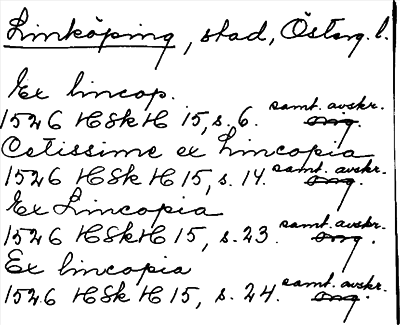 Linköping, stad, Österg. l.
Ex lincop.
1526 HSkH 15, s. 6. samt. avskr. orig.
Octissime ex Lincopia
1526 HSkH 15, s. 14. samt. avskr. orig.
Ex Lincopia
1526 HSkH 15, s. 23. samt. avskr. orig.
Ex lincopia
1526 HSkH 15, s. 24. samt. avskr. orig.